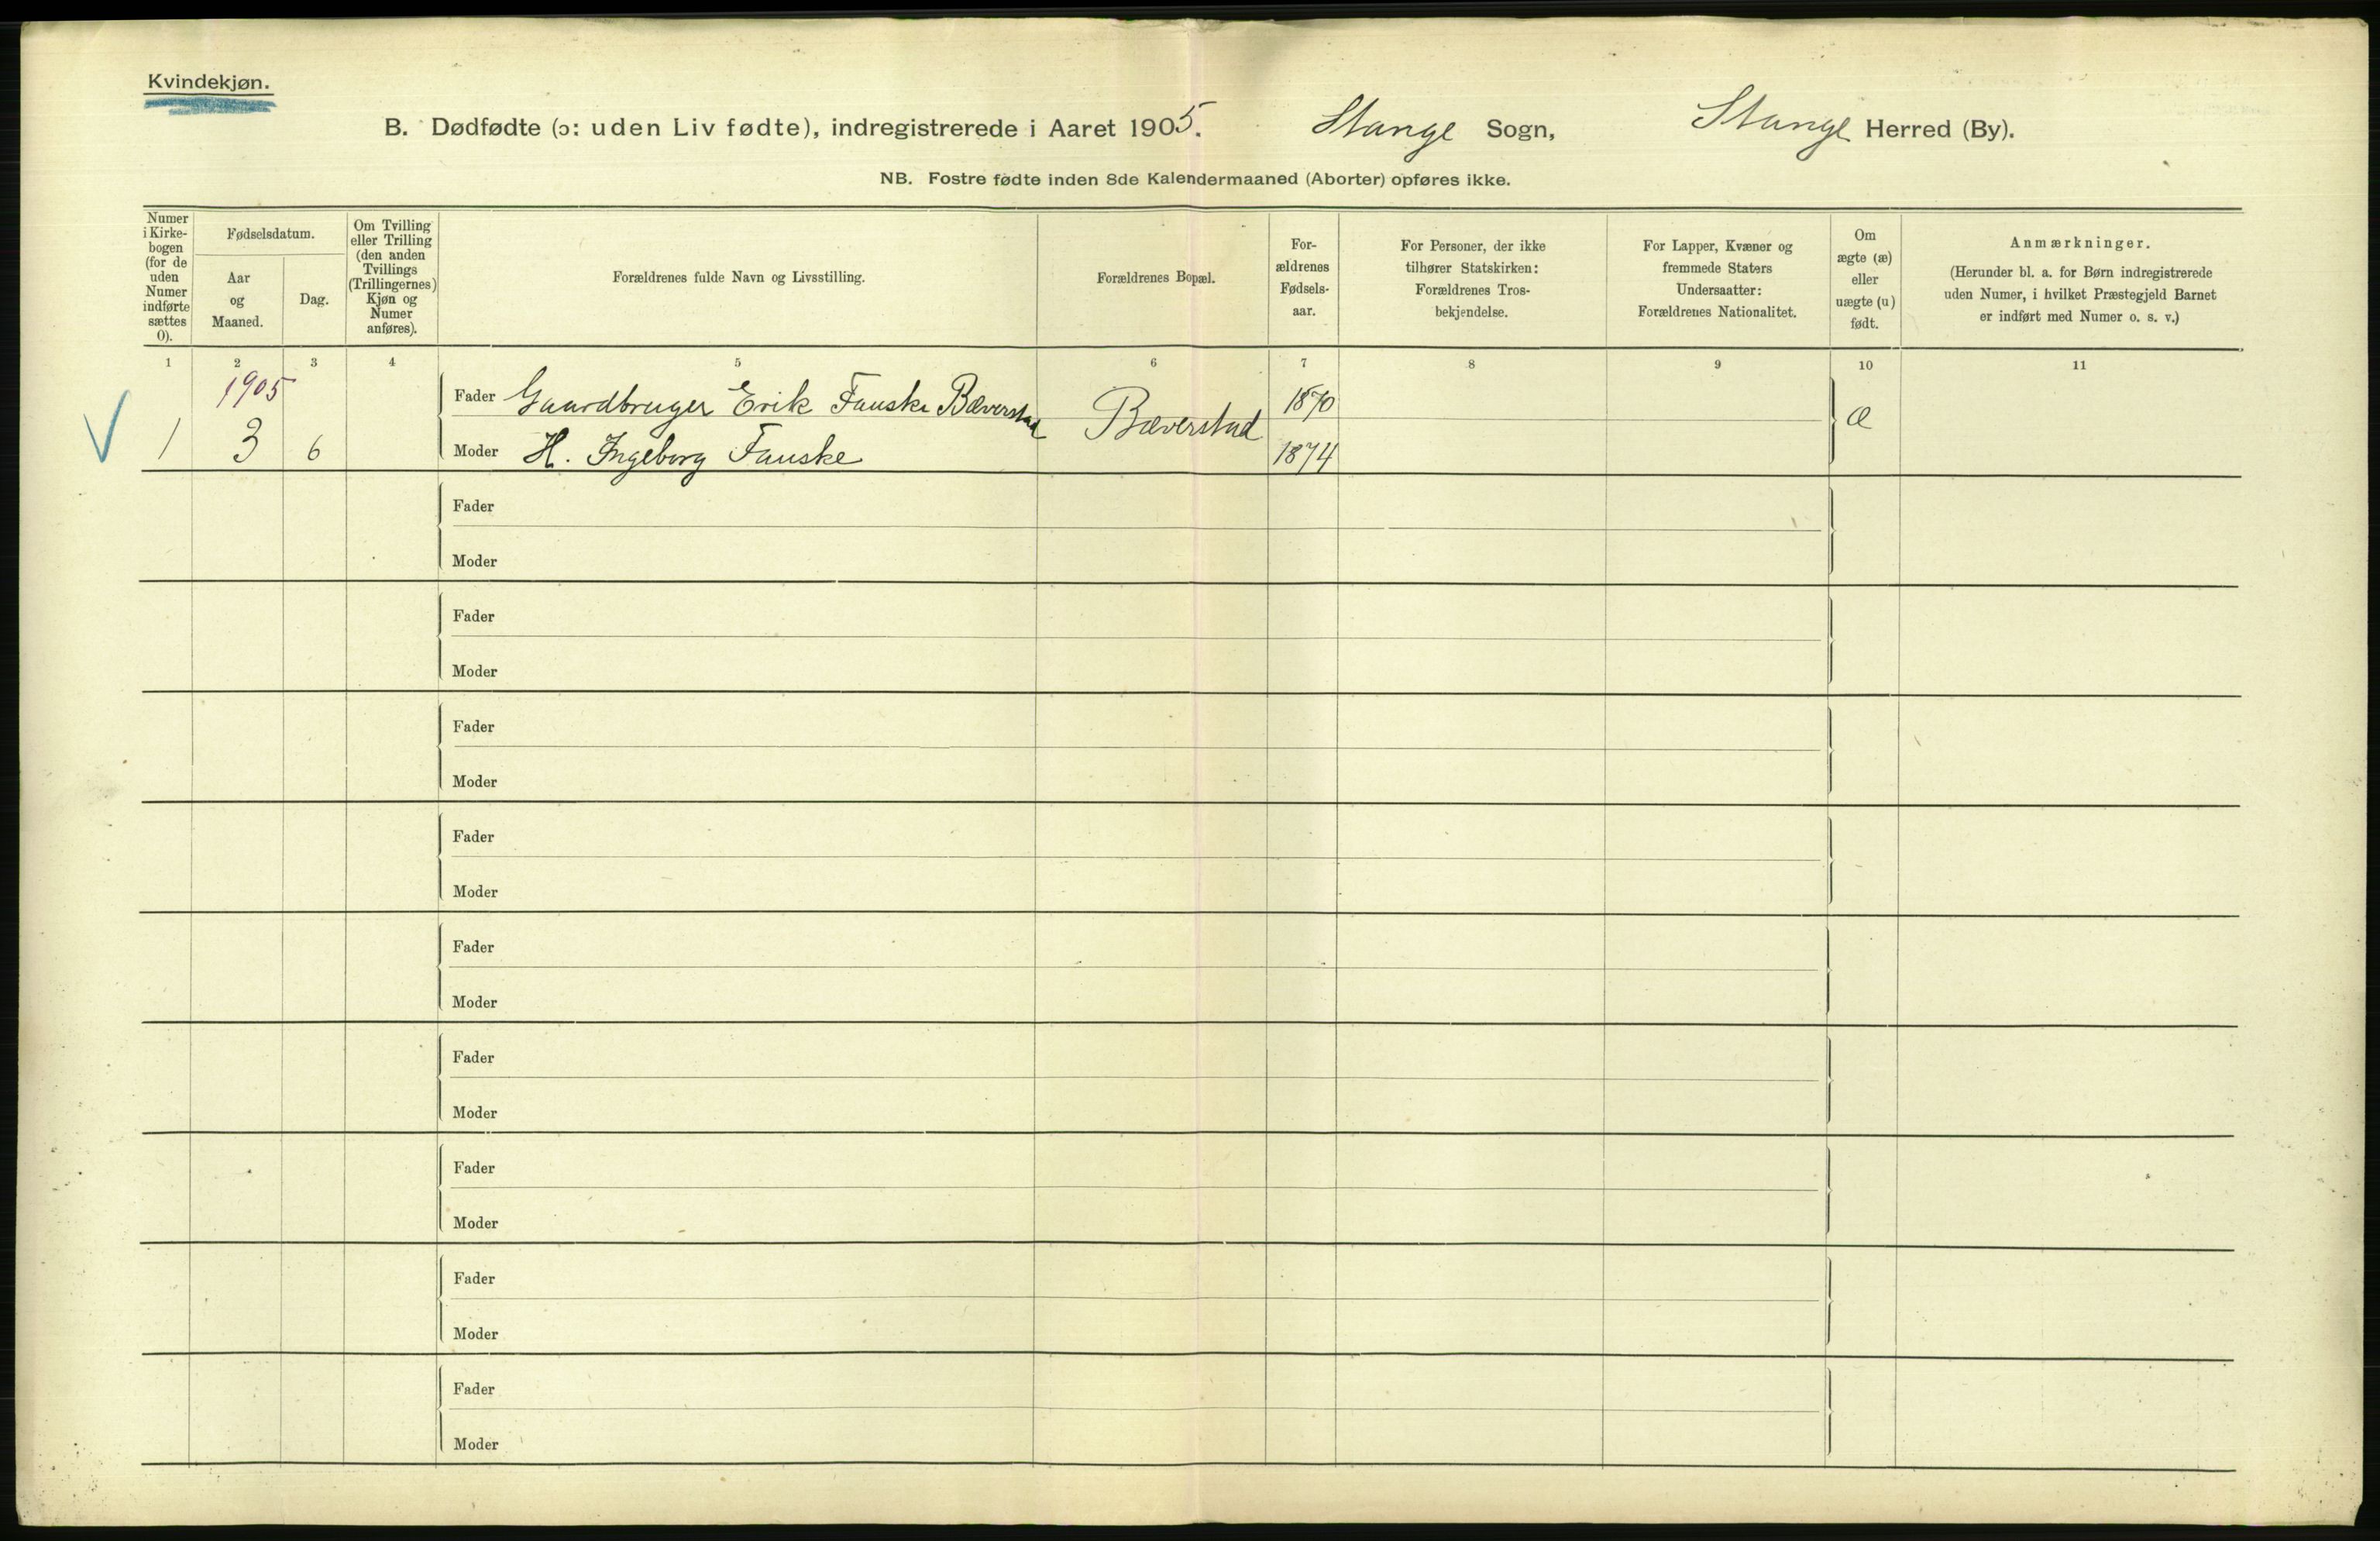 Kvindekjøn.
B. Dødfødte (ɔ: uden Liv fødte), indregistrerede i Aaret 1905. Stange Sogn, Stange Herred (By).
NB. Fostre fødte inden 8de Kalendermaaned (Aborter) opføres ikke.
Numer
i Kirke-
bogen
(for de
uden
Numer
indførte
sættes
0).
Fødselsdatum.
Aar
og
Maaned.
Dag.
Om Tvilling
eller Trilling
(den anden
Tvillings
(Trillingernes)
Kjøn og
Numer
anføres).
Forældrenes fulde Navn og Livsstilling.
Forældrenes Bopæl.
For-
ældrenes
Fødsels-
aar.
For Personer, der ikke
tilhører Statskirken:
Forældrenes Tros-
bekjendelse.
For Lapper, Kvæner og
fremmede Staters
Undersaatter:
Forældrenes Nationalitet.
Om
ægte (æ)
eller
uægte (u)
født.
Anmærkninger.
(Herunder bl. a. for Børn indregistrerede
uden Numer, i hvilket Præstegjeld Barnet
er indført med Numer o. s. v.)
1 2 3 4 5 6 7 8 9 10 11
1905
Fader Gaardbruger Erik Fauske Bæverstad Bæverstad 1870 æ
1 3 6 Moder H. Ingeborg Fauske 1874
Fader
Moder
Fader
Moder
Fader
Moder
Fader
Moder
Fader
Moder
Fader
Moder
Fader
Moder
Fader
Moder
Fader
Moder